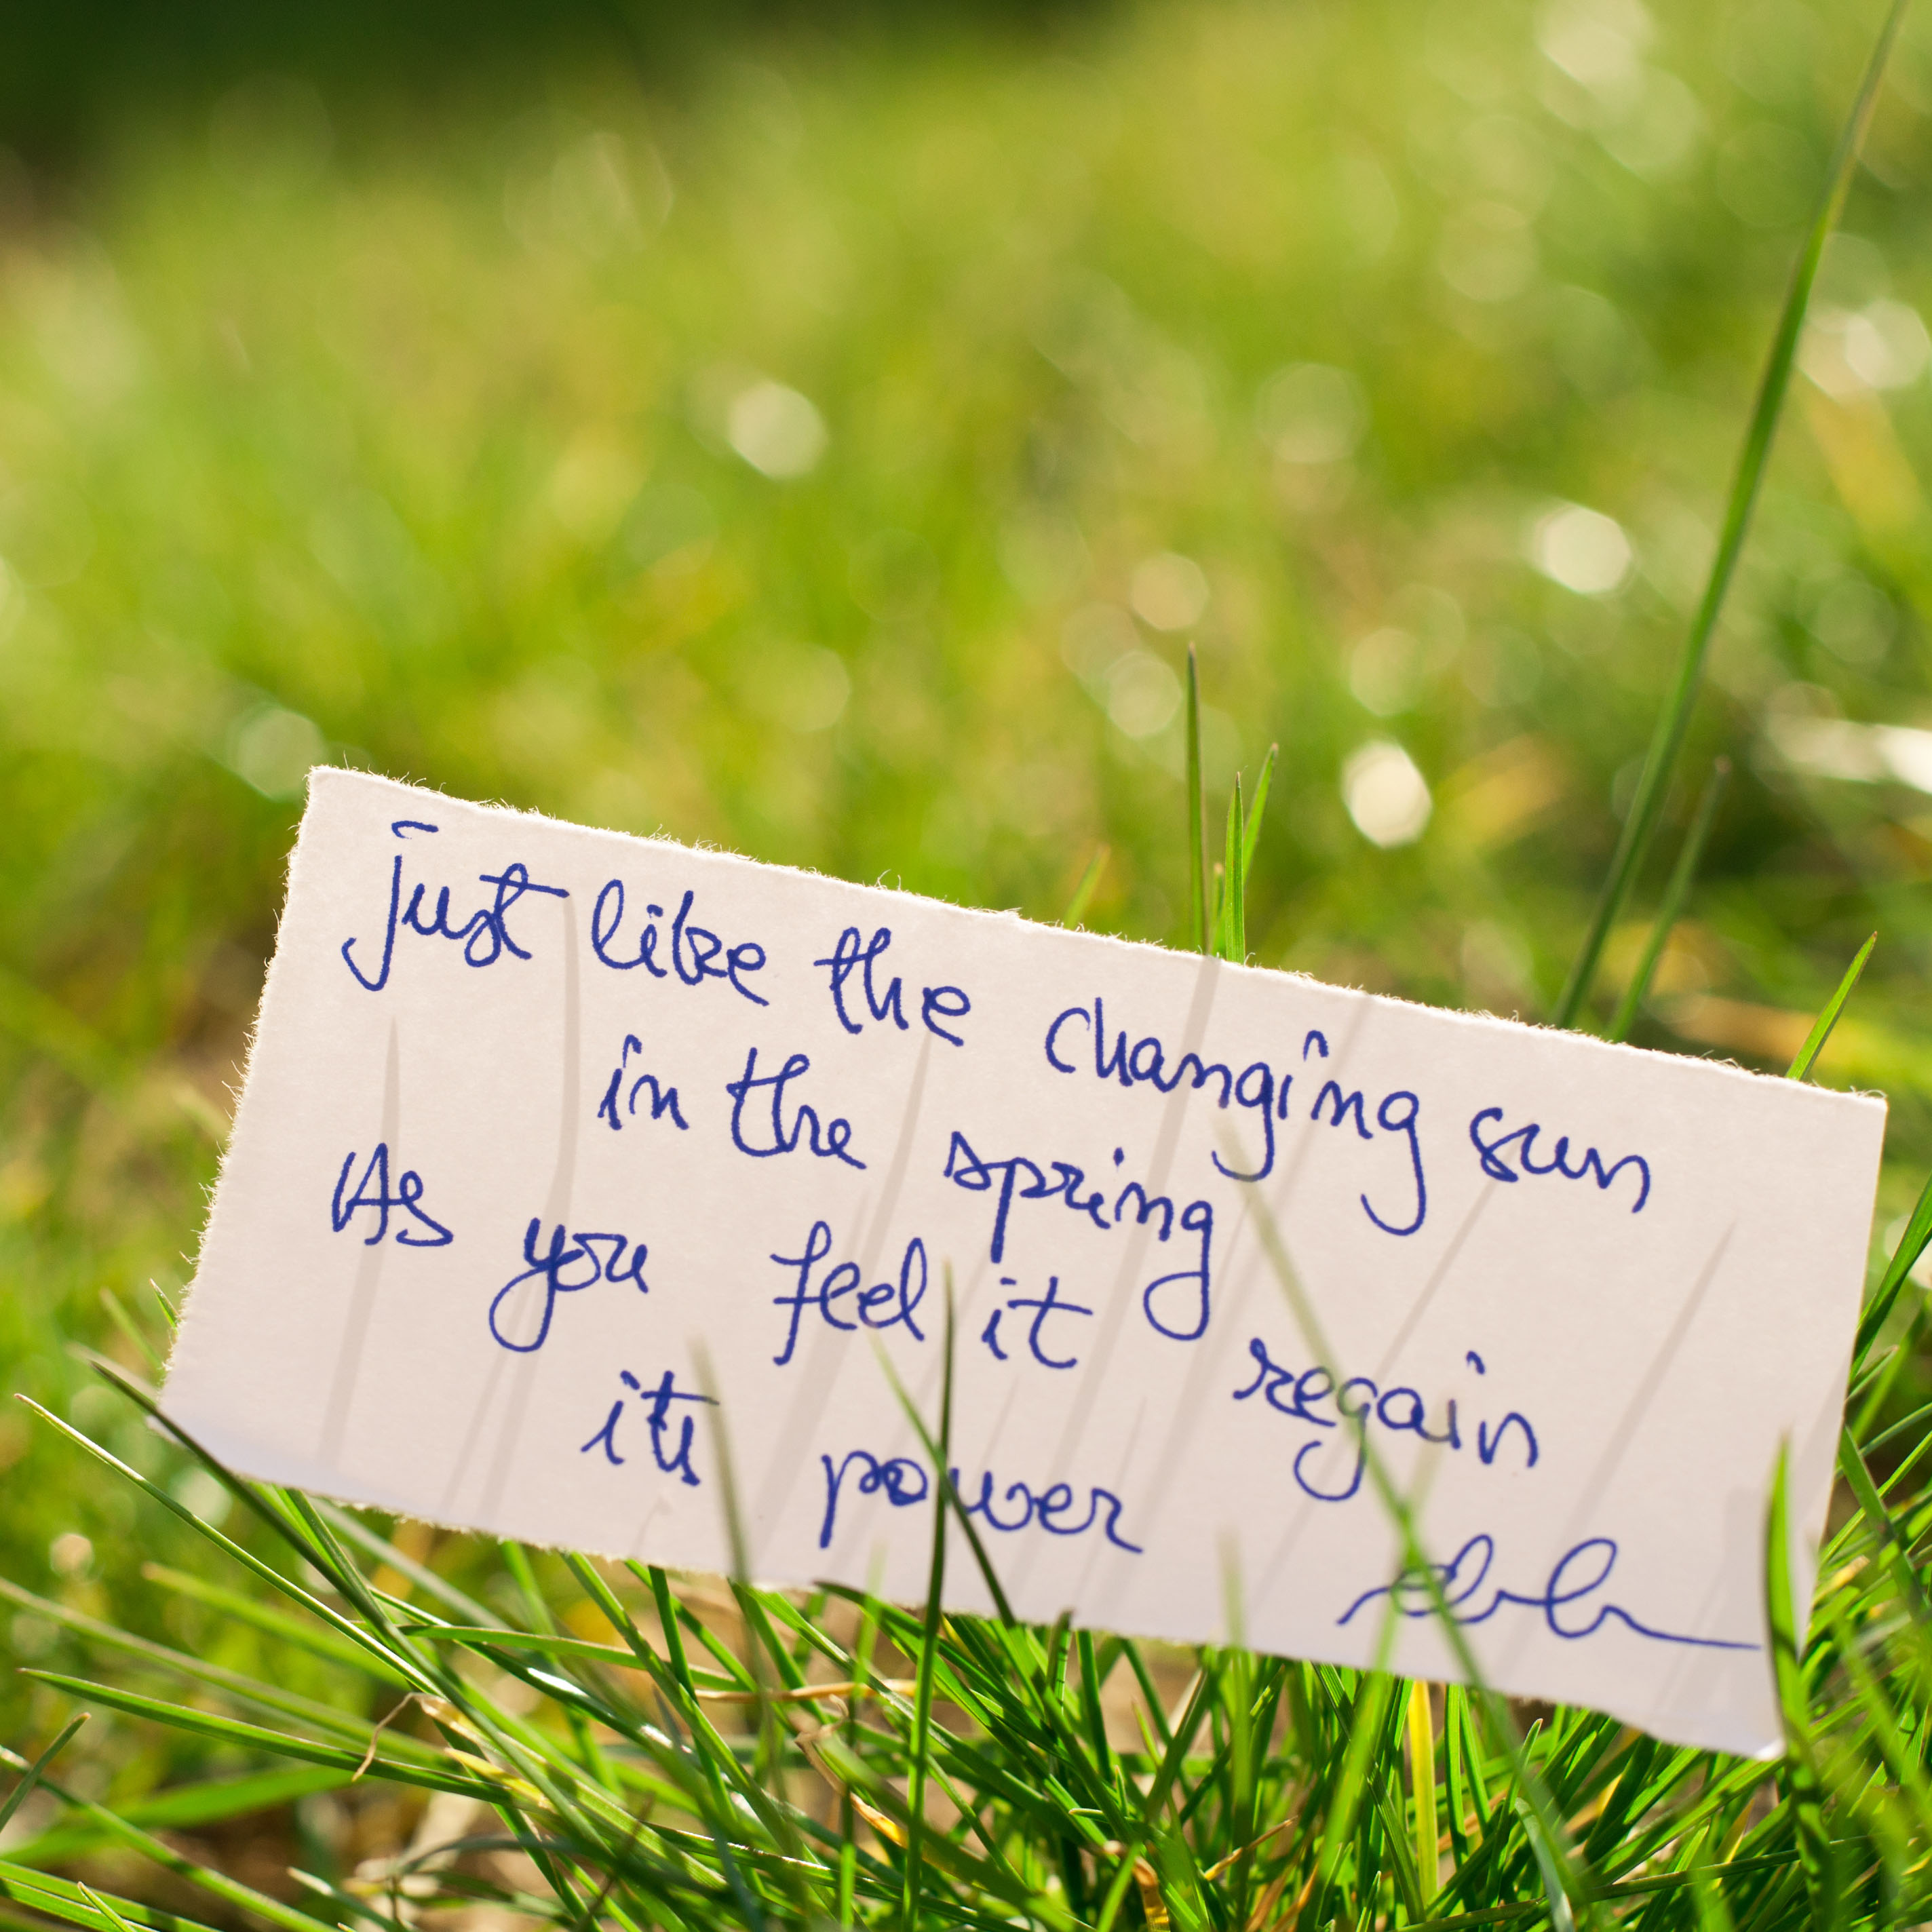 Just like the changing sun
in the spring
As you feel it regain
its power